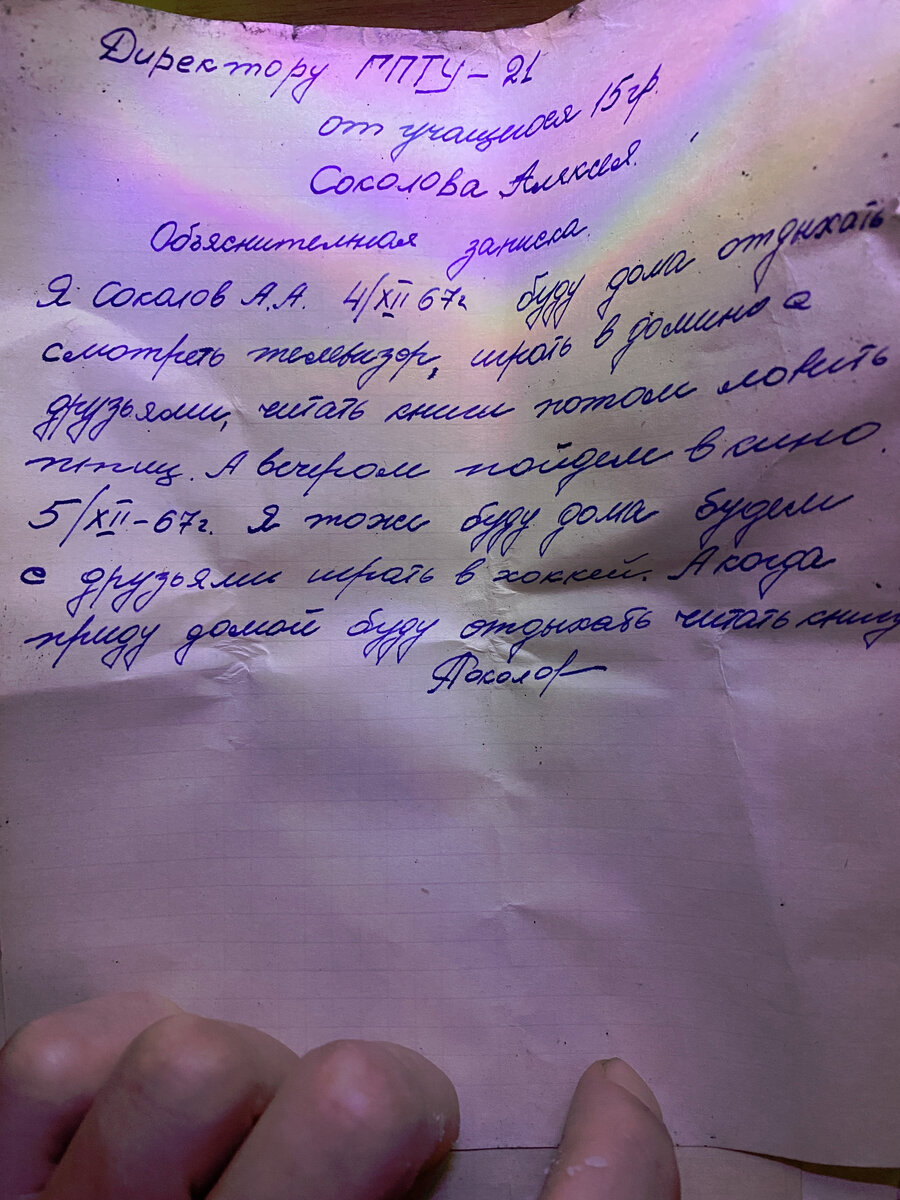 Директору ГПТУ-21
от учащегося 15гр.
Соколова Алексея.
Объяснителная записка.
Я Соколов А.А. 4/XII 67г буду дома отдыхать
смотреть телевизор, играть в домино с
друзьями, читать книги потом ловить
птиц. А вечером пойдем в кино
5/XII-67г. Я тоже буду дома будем
с друзьями играть в хоккей. А когда
приду домой буду отдыхать читать книгу
АСоколов